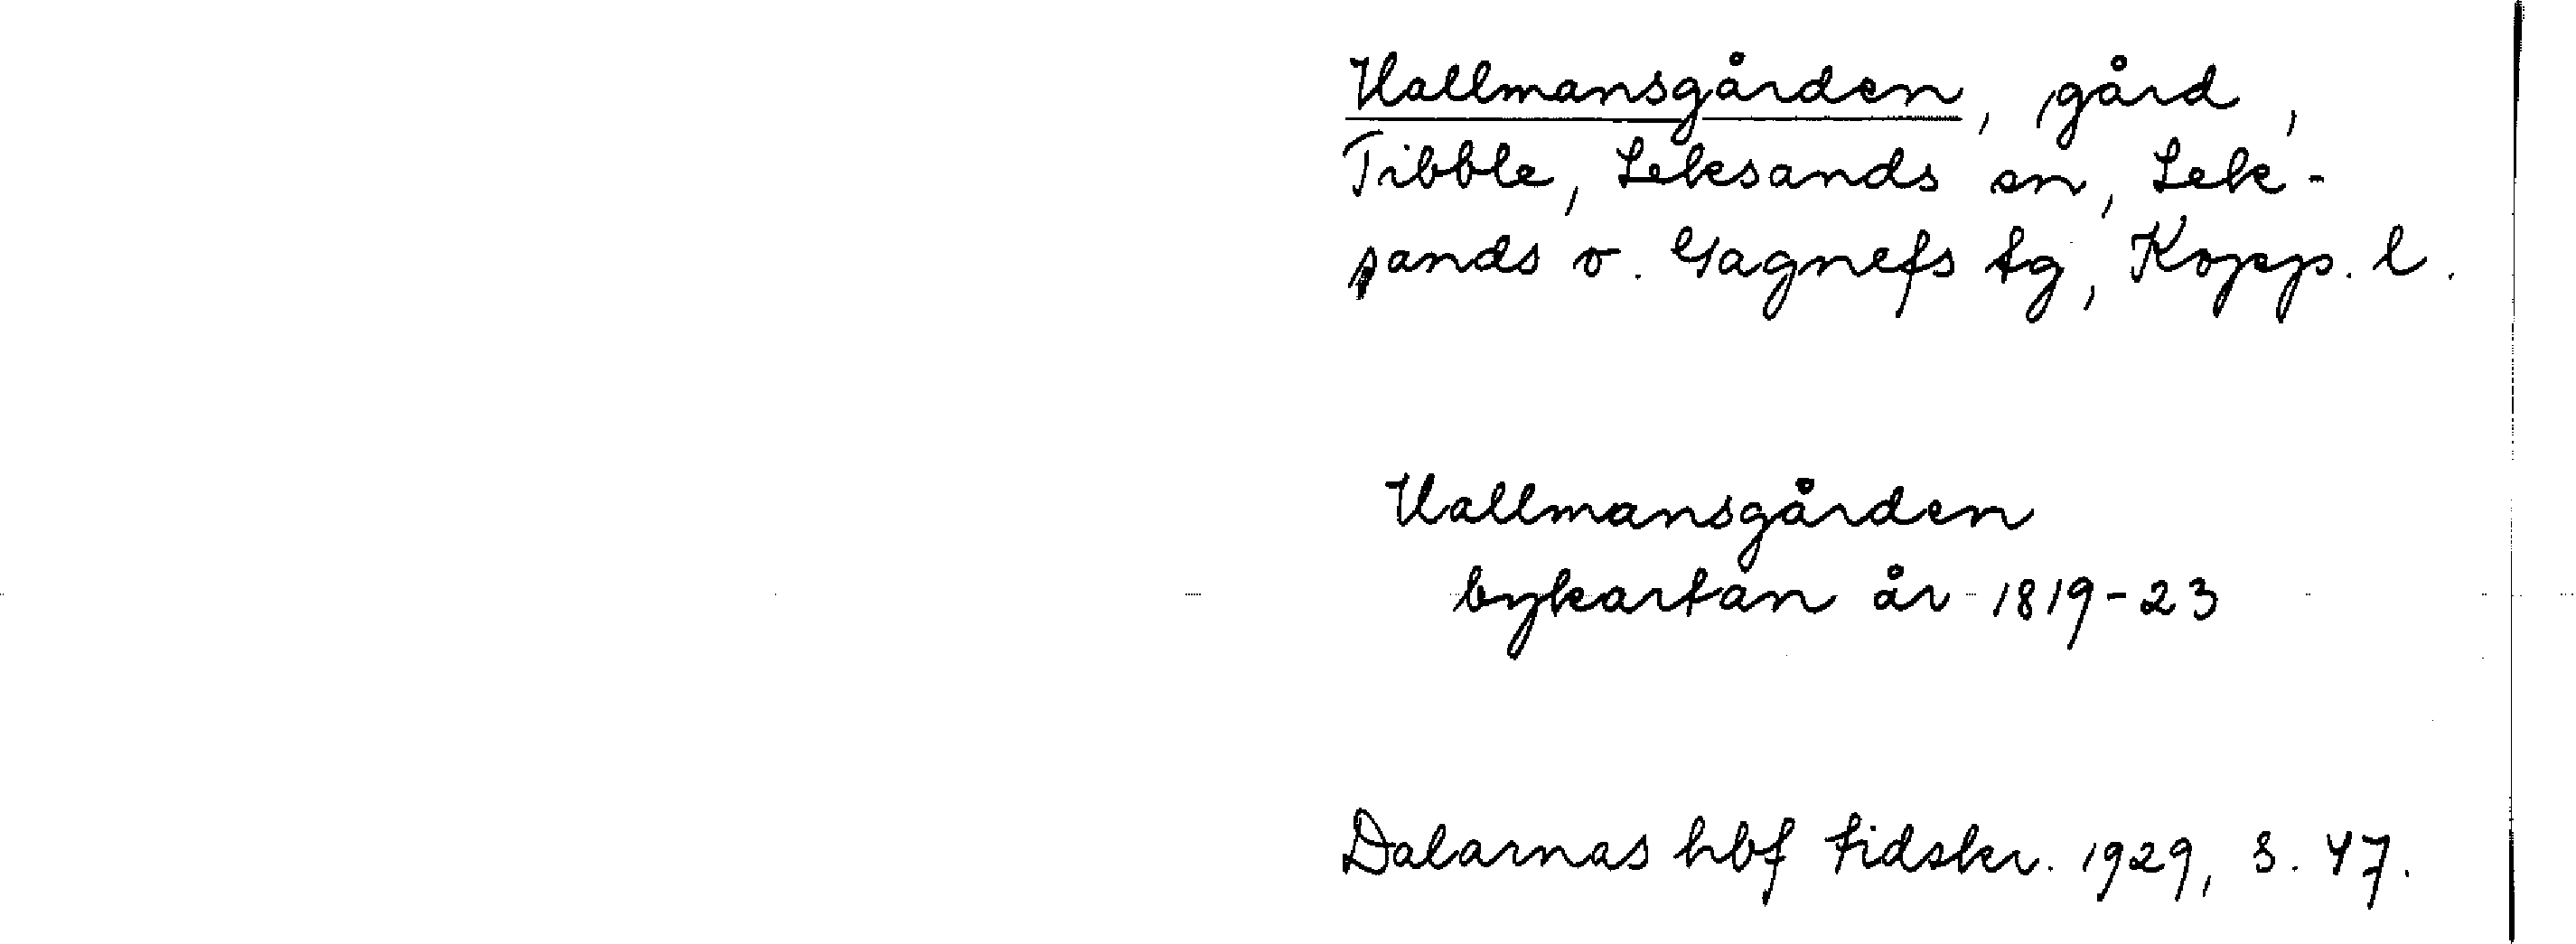 Hallmansgården, gård,
Tibble, Leksands sn, Lek-
sands o. Gagnefs tg, Kopp. l.
Hallmansgården
bykartan år 1819-23
Dalarnas hbf tidskr. 1929, s. 47.